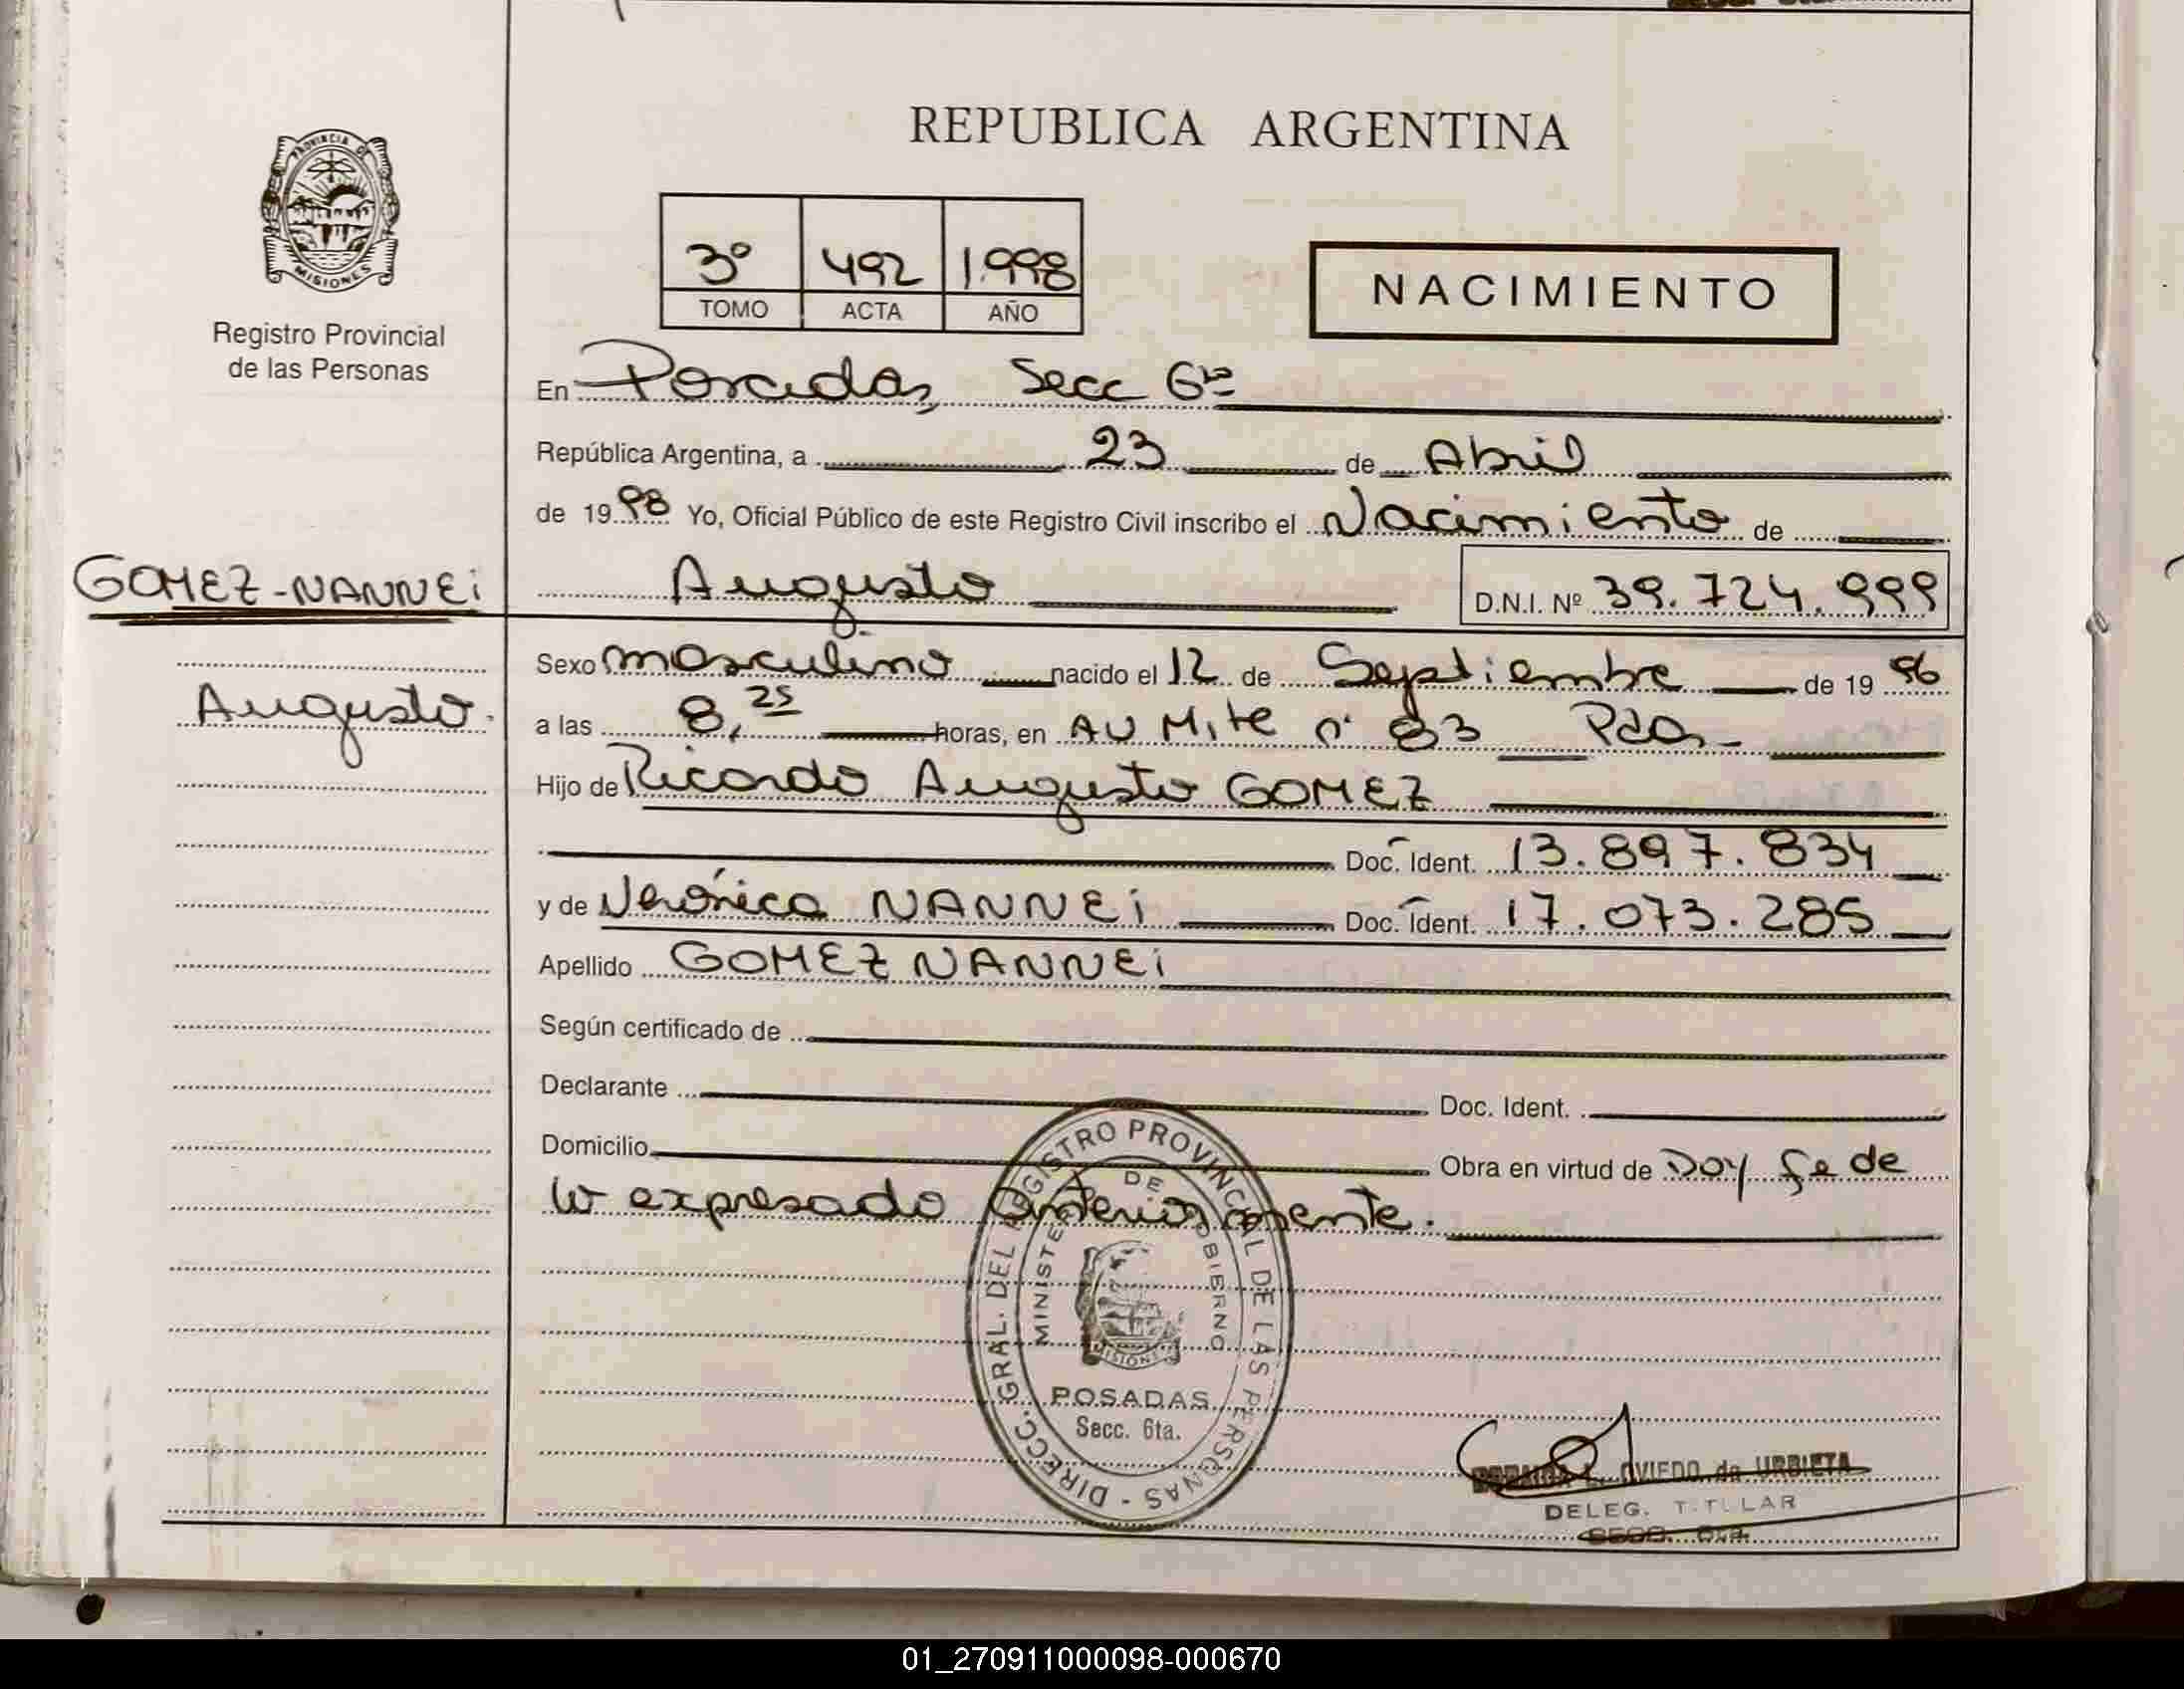 REPUBLICA ARGENTINA
PROVINCIA DE
MISIONES
Registro Provincial
de las Personas
3º 492 1.998
TOMO ACTA AÑO
NACIMIENTO
En Posadas, Secc 6ta
República Argentina, a 23 de Abril
de 1998 Yo, Oficial Público de este Registro Civil inscribo el Nacimiento de
GOMEZ-NANNEi
Augusto D.N.I. Nº 39.724.999
Sexo masculino nacido el 12 de Septiembre de 1996
Augusto.
a las 8,25 horas, en AV Mite nº 83 Pdas
Hijo de Ricardo Augusto GOMEZ
Doc. Ident. 13.897.834
y de Verónica NANNEi Doc. Ident. 17.073.285
Apellido GOMEZ NANNEi
Según certificado de
Declarante Doc. Ident.
Domicilio Obra en virtud de Doy fe de
lo expresado anteriormente.
DIRECC. GRAL. DEL REGISTRO PROVINCIAL DE LAS PERSONAS -
MINISTE DE GOBIERNO
MISIONES
POSADAS
Secc. 6ta.
L. OVIEDO de URBIETA
DELEG. TITULAR
SECC. 6ta.
01_270911000098-000670